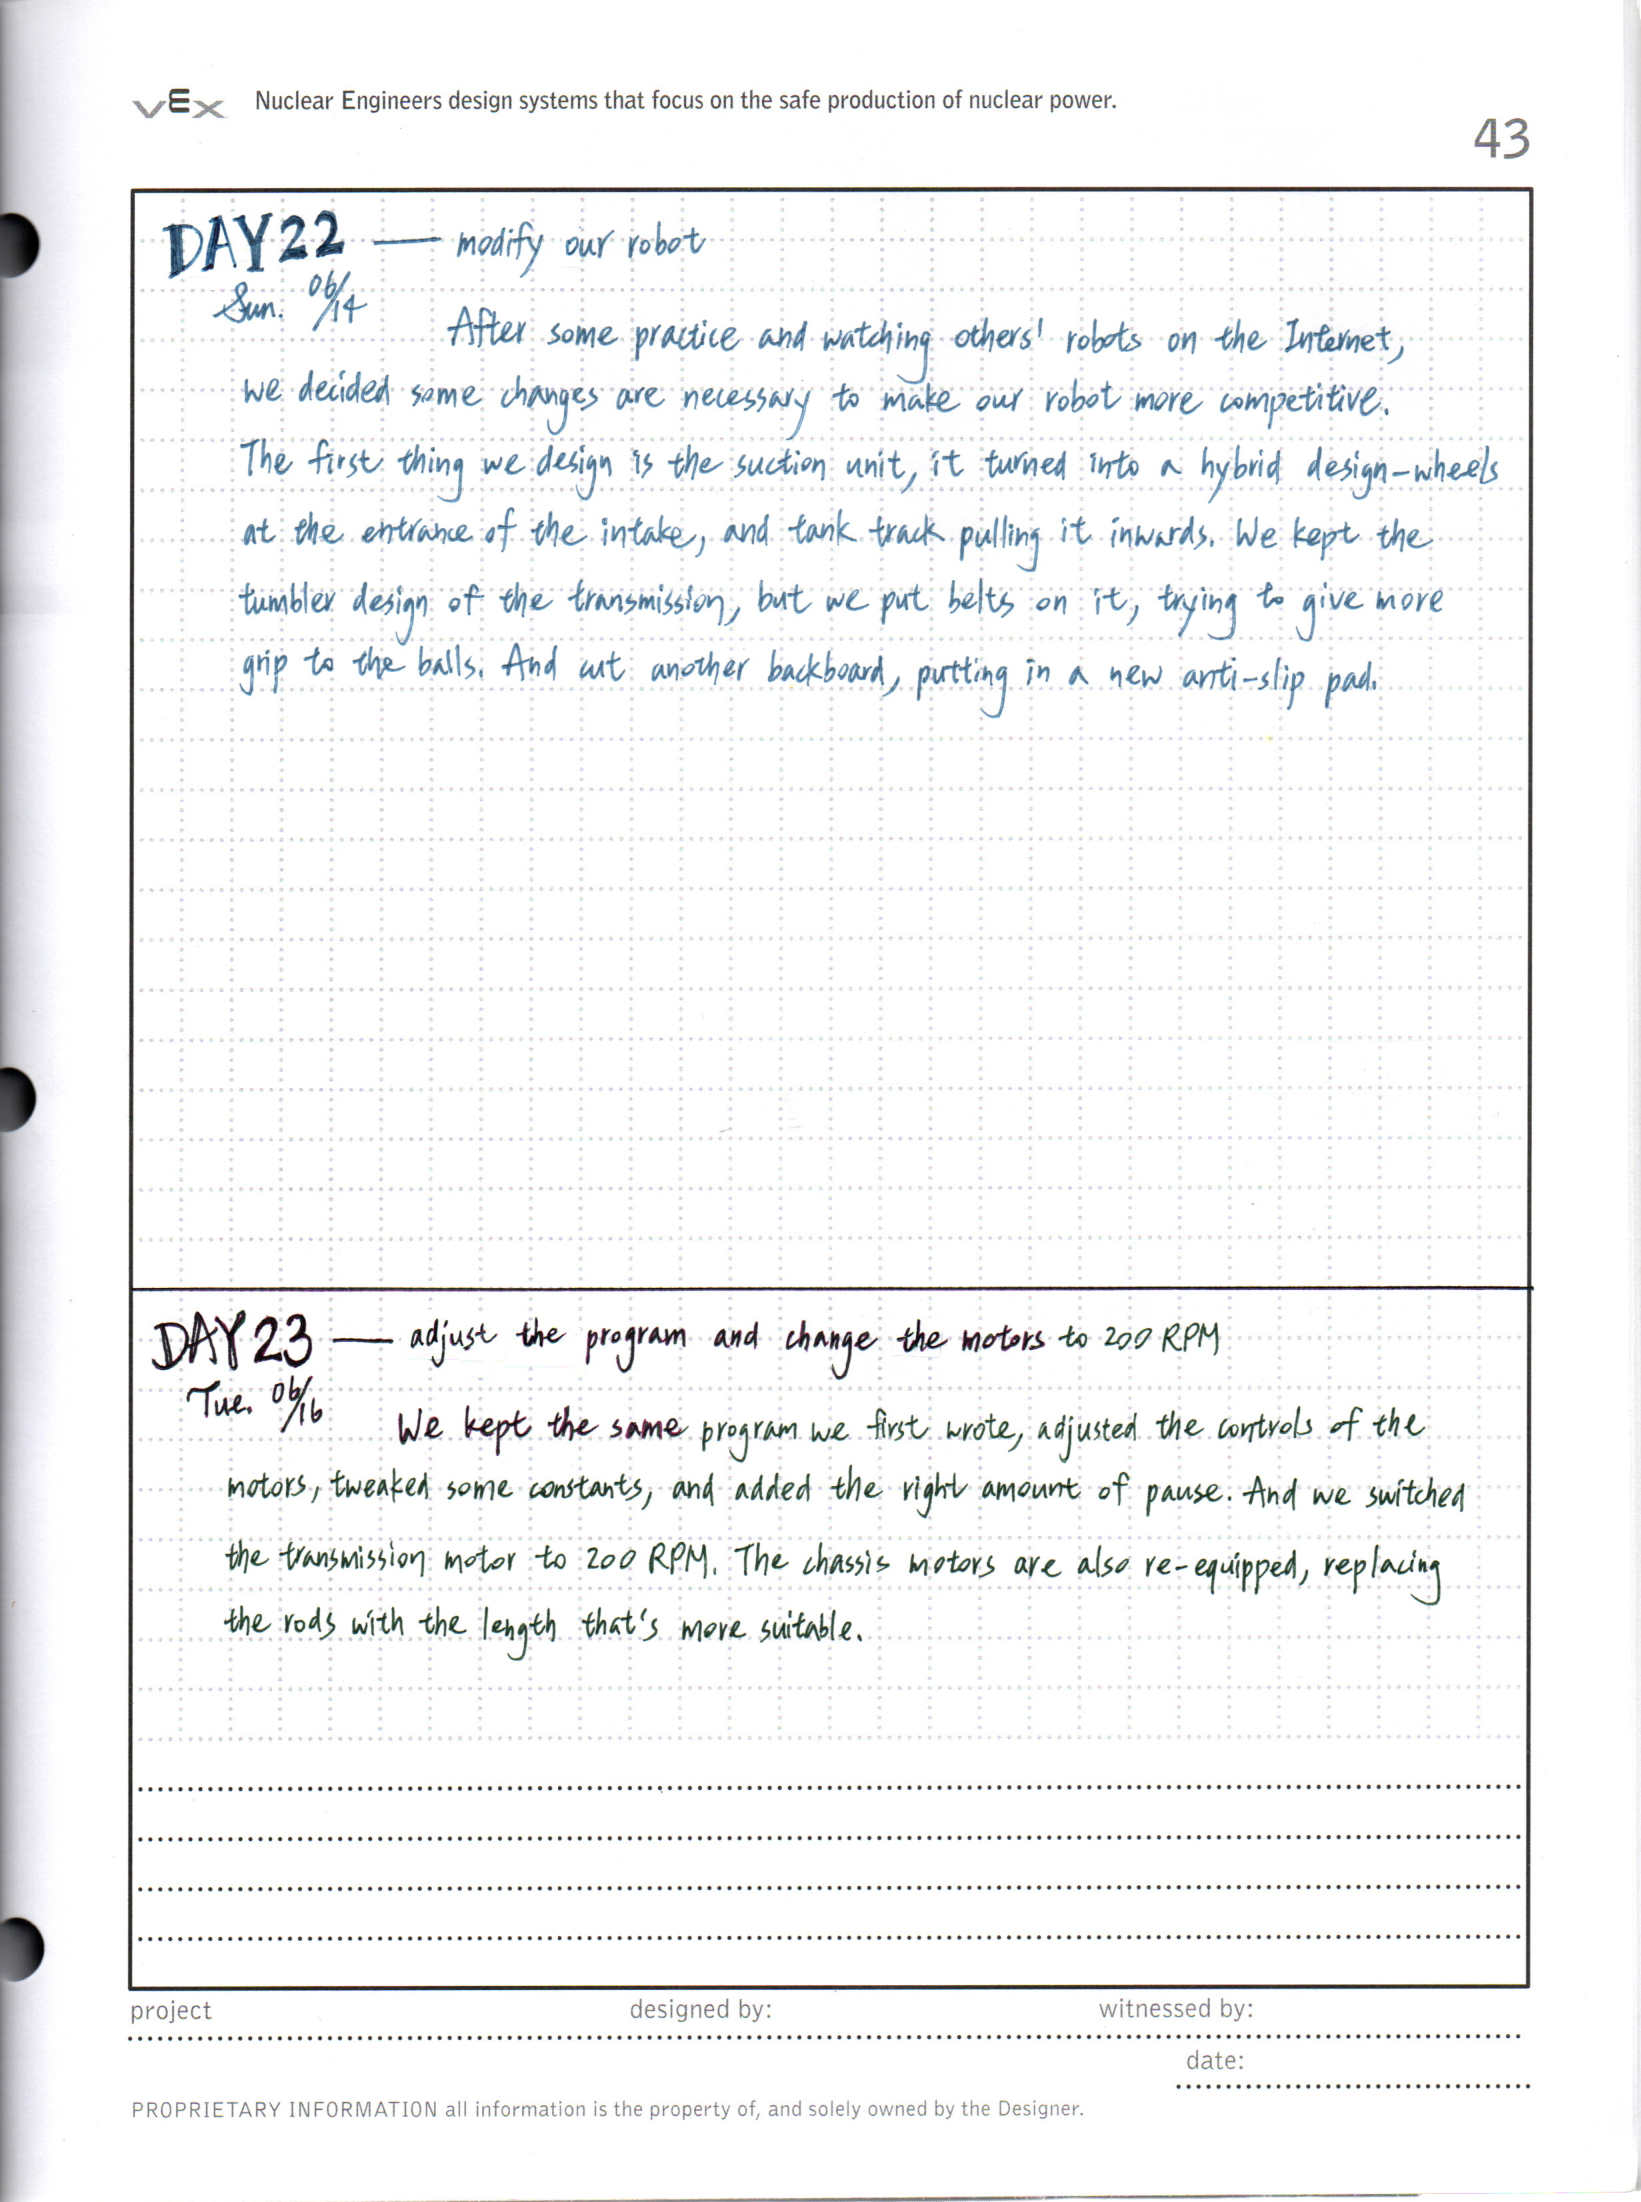 VEX Nuclear Engineers design systems that focus on the safe production of nuclear power.
43
DAY 22 — modify our robot
Sun. 06/14
After some practice and watching others' robots on the Internet,
we decided some changes are necessary to make our robot more competitive.
The first thing we design is the suction unit, it turned into a hybrid design-wheels
at the entrance of the intake, and tank track pulling it inwards. We kept the
tumbler design of the transmission, but we put belts on it, trying to give more
grip to the balls. And cut another backboard, putting in a new anti-slip pad.
DAY 23 — adjust the program and change the motors to 200 RPM
Tue. 06/16
We kept the same program we first wrote, adjusted the controls of the
motors, tweaked some constants, and added the right amount of pause. And we switched
the transmission motor to 200 RPM. The chassis motors are also re-equipped, replacing
the rods with the length that's more suitable.
project designed by: witnessed by:
date:
PROPRIETARY INFORMATION all information is the property of, and solely owned by the Designer.